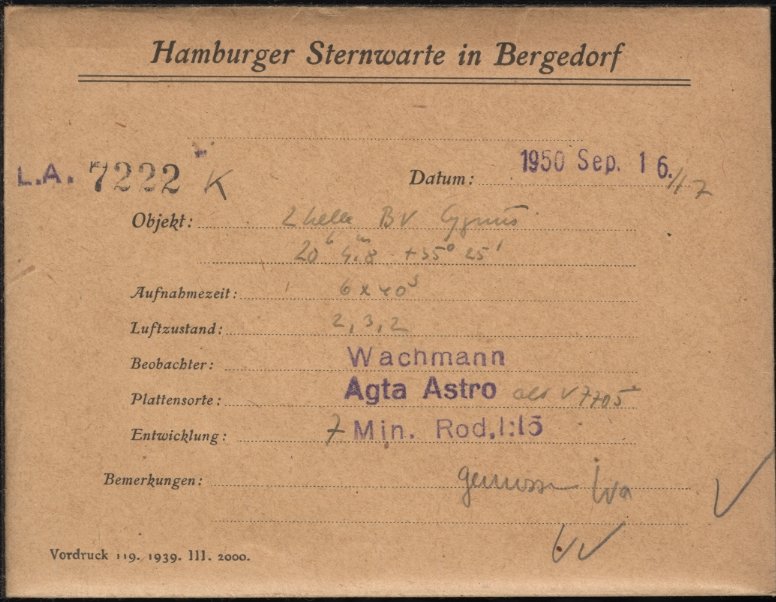 Hamburger Sternwarte in Bergedorf
L.A. 7222 K Datum: 1950 Sep. 16./17
Objekt: 2 helle BV Cygnus
20h 4m,8 +35° 25'
Aufnahmezeit: 6 x 40s
Luftzustand: 2, 3, 2
Beobachter: Wachmann
Plattensorte: Agfa Astro
Entwicklung: 7 Min. Rod.1:15
Bemerkungen: gemessen Wa
Vordruck 119. 1939. III. 2000.